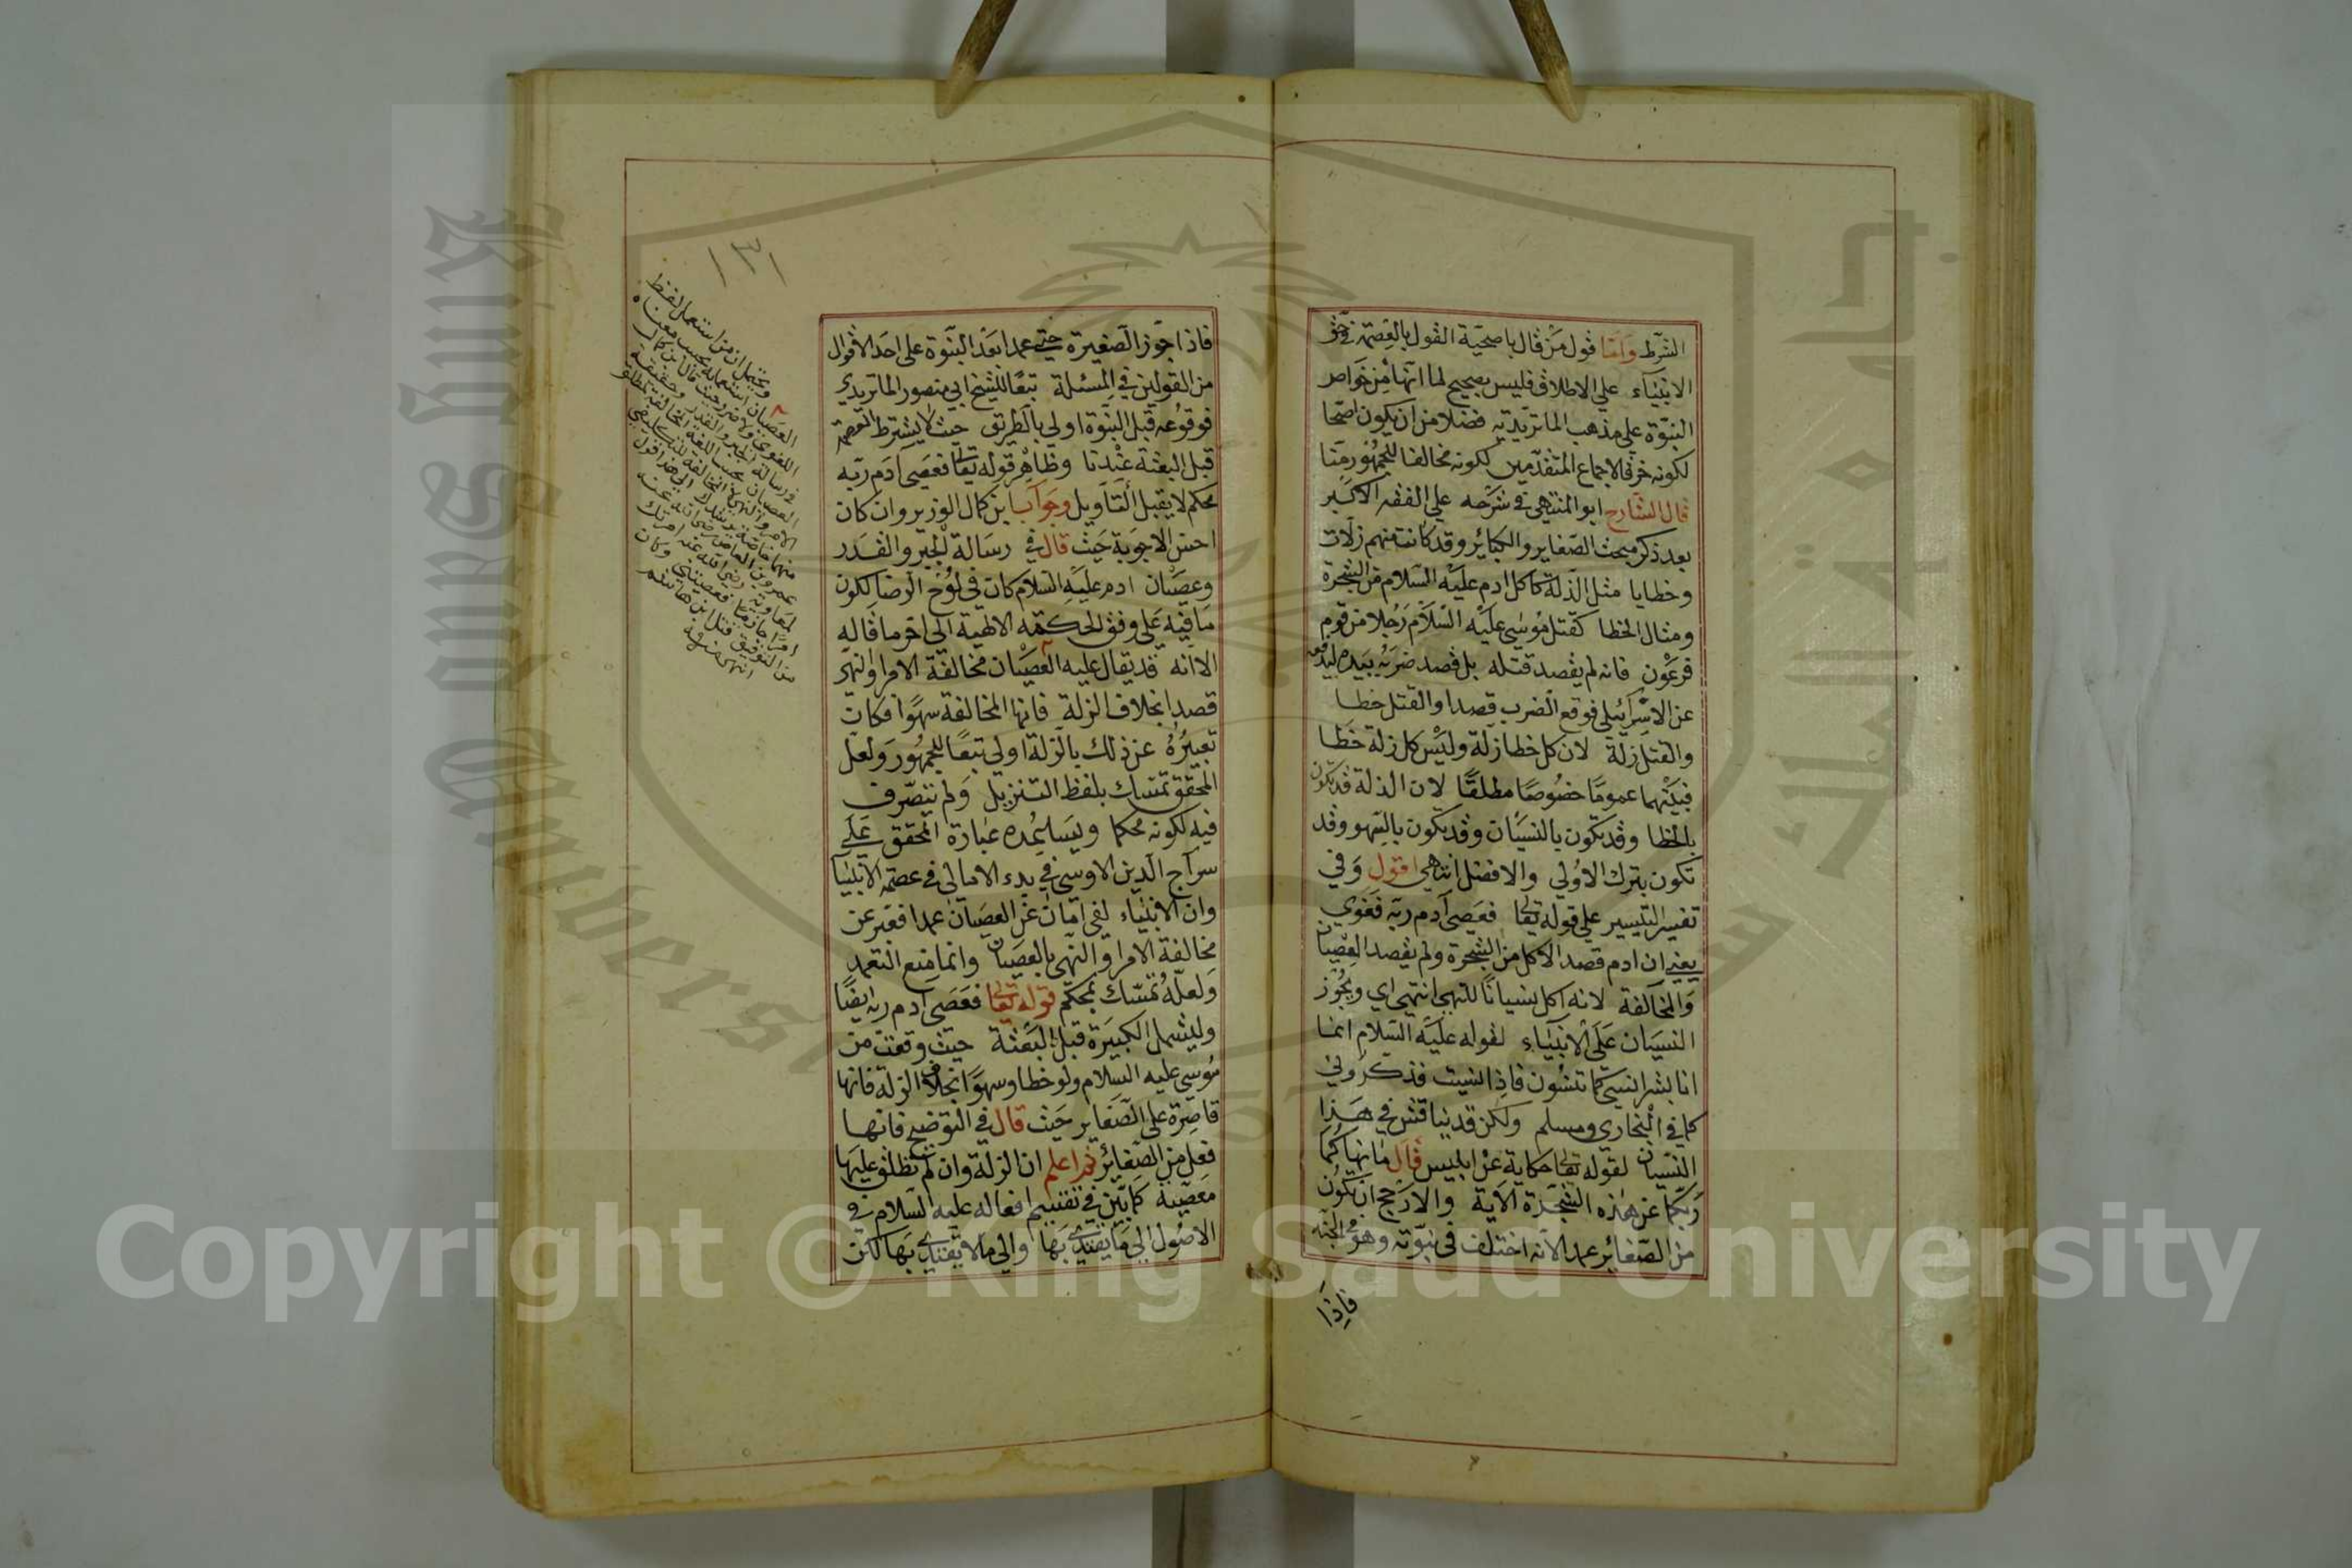 الشرط وامّا قول من قال باصحّية القول بالعصمة في حق
الانبياء علي الاطلاق فليس بصحيح لما انها من خواص
النبوّة علي مذهب الماتريدية فضلا من ان يكون اصحا
لكونه خرق الاجماع المتقدمين لكونه مخالفا للجمهور منا
قال الشارح ابو المنتهي في شرحه علي الفقه الاكبر
بعد ذكر مبحث الصغاير والكبائر وقد كانت منهم زلات
وخطايا مثل الذلة كاكل ادم عليه السلام من الشجرة
ومثال الخطا كقتل موسي عليه السلام رجلا من قوم
فرعون فانه لم يقصد قتله بل قصد ضربه بيده ليدفعه
عن الاسرائيلي فوقع الضرب قصدا والقتل خطا
والقتل زلة لان كل خطا زلة وليس كل زلة خطا
فبينهما عموما خصوصا مطلقا لان الذلة قد تكون
بالخطا وقد تكون بالنسيان وقد تكون بالسهو وقد
تكون بترك الاولي والافضل انتهي اقول وفي
تفسير التيسير علي قوله تعالى فعصي آدم ربه فغوي
يعني ان ادم قصد الاكل من الشجرة ولم يقصد العصيان
والمخالفة لانه اكل نسيانا للنهي انتهي اي ويجوز
النسيان على الانبياء لقوله عليه السلام انما
انا بشر انسي كما تنسون فاذا نسيت فذكروني
كما في البخاري ومسلم ولكن قد يناقش في هذا
النسيان لقوله تعالى حكاية عن ابليس قال ما نهاكما
ربكما عن هذه الشجرة الآية والارجح ان تكون
من الصغائر عمدا لانه اختلف في نبوّته وهو في الجنة
فاذا
١٣١
فاذا جوّز الصغيرة حتي عمدا بعد النبوّة على احد الاقوال
من القولين في المسئلة تبعا للشيخ ابي منصور الماتريدي
فوقوعه قبل النبوّة اولي بالطريق حيث لا يشترط العصمة
قبل البعثة عندنا وظاهر قوله تعالى فعصي آدم ربه
محكم لا يقبل التاويل وجواب ابن كمال الوزير وان كان
احسن الاجوبة حيث قال في رسالة الجبر والقدر
وعصيان ادم عليه السلام كان في لوح الرضا لكون
ما فيه على وفق الحكمة الالهية الى اخر ما قاله
الا انه قد يقال عليه العصيان مخالفة الامر والنهي
قصدا بخلاف الزلة فانها المخالفة سهوا فكان
تعبيره عن ذلك بالزلة اولي تبعا للجمهور ولعل
المحقق تمسك بلفظ التنزيل ولم يتصرف
فيه لكونه محكما ويساعده عبارة المحقق علي
سراج الدين الاوسي في بدء الامالي في عصمة الانبيا
وان الانبياء لفي امان عن العصيان عمدا فعبر عن
مخالفة الامر والنهي بالعصيان وانما منع التعمد
ولعله تمسك بمحكم قوله تعالى فعصي ادم ربه ايضا
وليشمل الكبيرة قبل البعثة حيث وقعت من
موسي عليه السلام ولو خطا وسهوا بخلاف الزلة فانها
قاصرة على الصغاير حيث قال في التوضيح فانها
فعل من الصغائر ثم اعلم ان الزلة وان لم تطلق عليها
معصية كما بيّن في تقسيم افعاله عليه السلام في
الاصول الي ما يقتدي بها والي ما لا يقتدي بها لكن
ويحتمل ان من استعمل لفظ
العصيان استعمله بحسب معناه
في رسالة الجبر والقدر
انتهي منه
Copyright © King Saud University
King Saud University